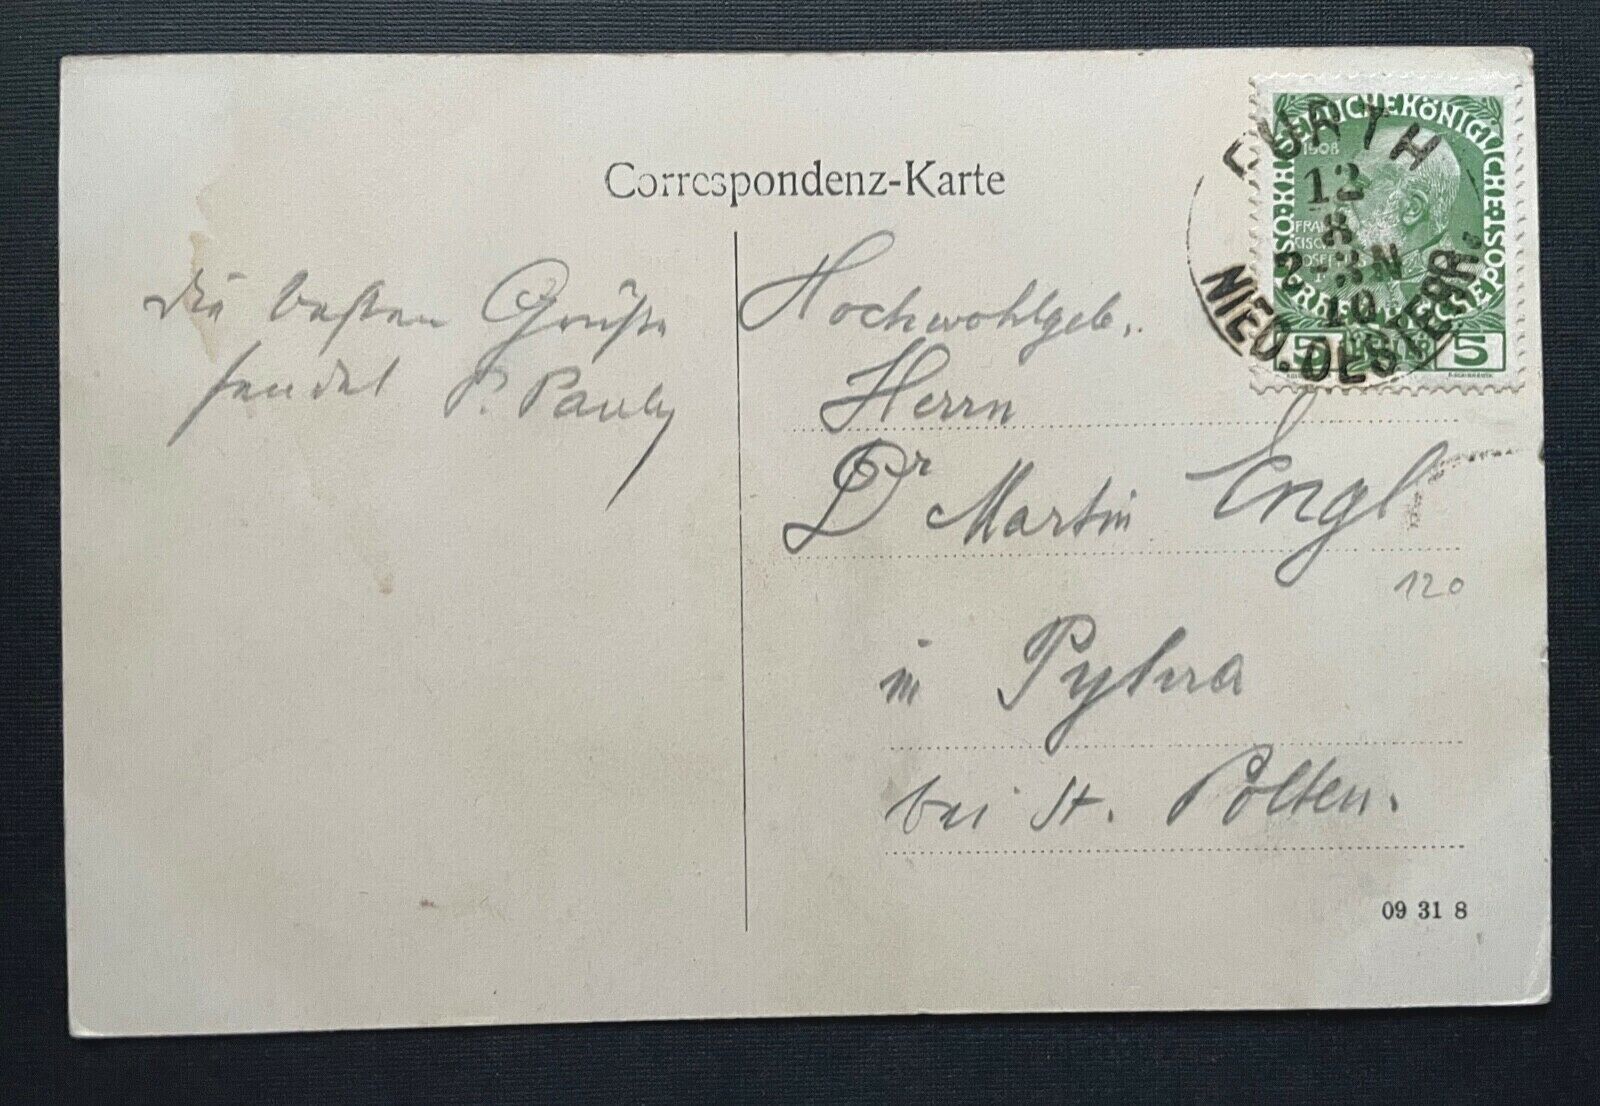 Correspondenz-Karte
FURTH
12
8
2-3N
10
NIED.OESTERR.
KAISERLICHE KÖNIGLICHE
1908
5 5
die besten Grüße
sendet P. Pauly
Hochwohlgeb.
Herrn
Dr Martin Engl
120
in Pyhra
bei St. Pölten.
09 31 8